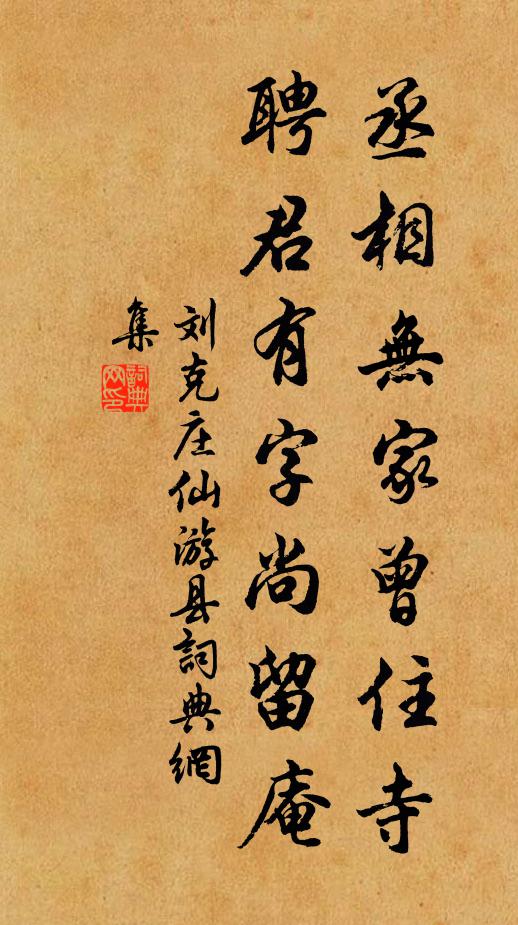 丞相無家曾住寺
聘君有字尚留庵
刘克庄仙游县詞典網
集
詞典
网印